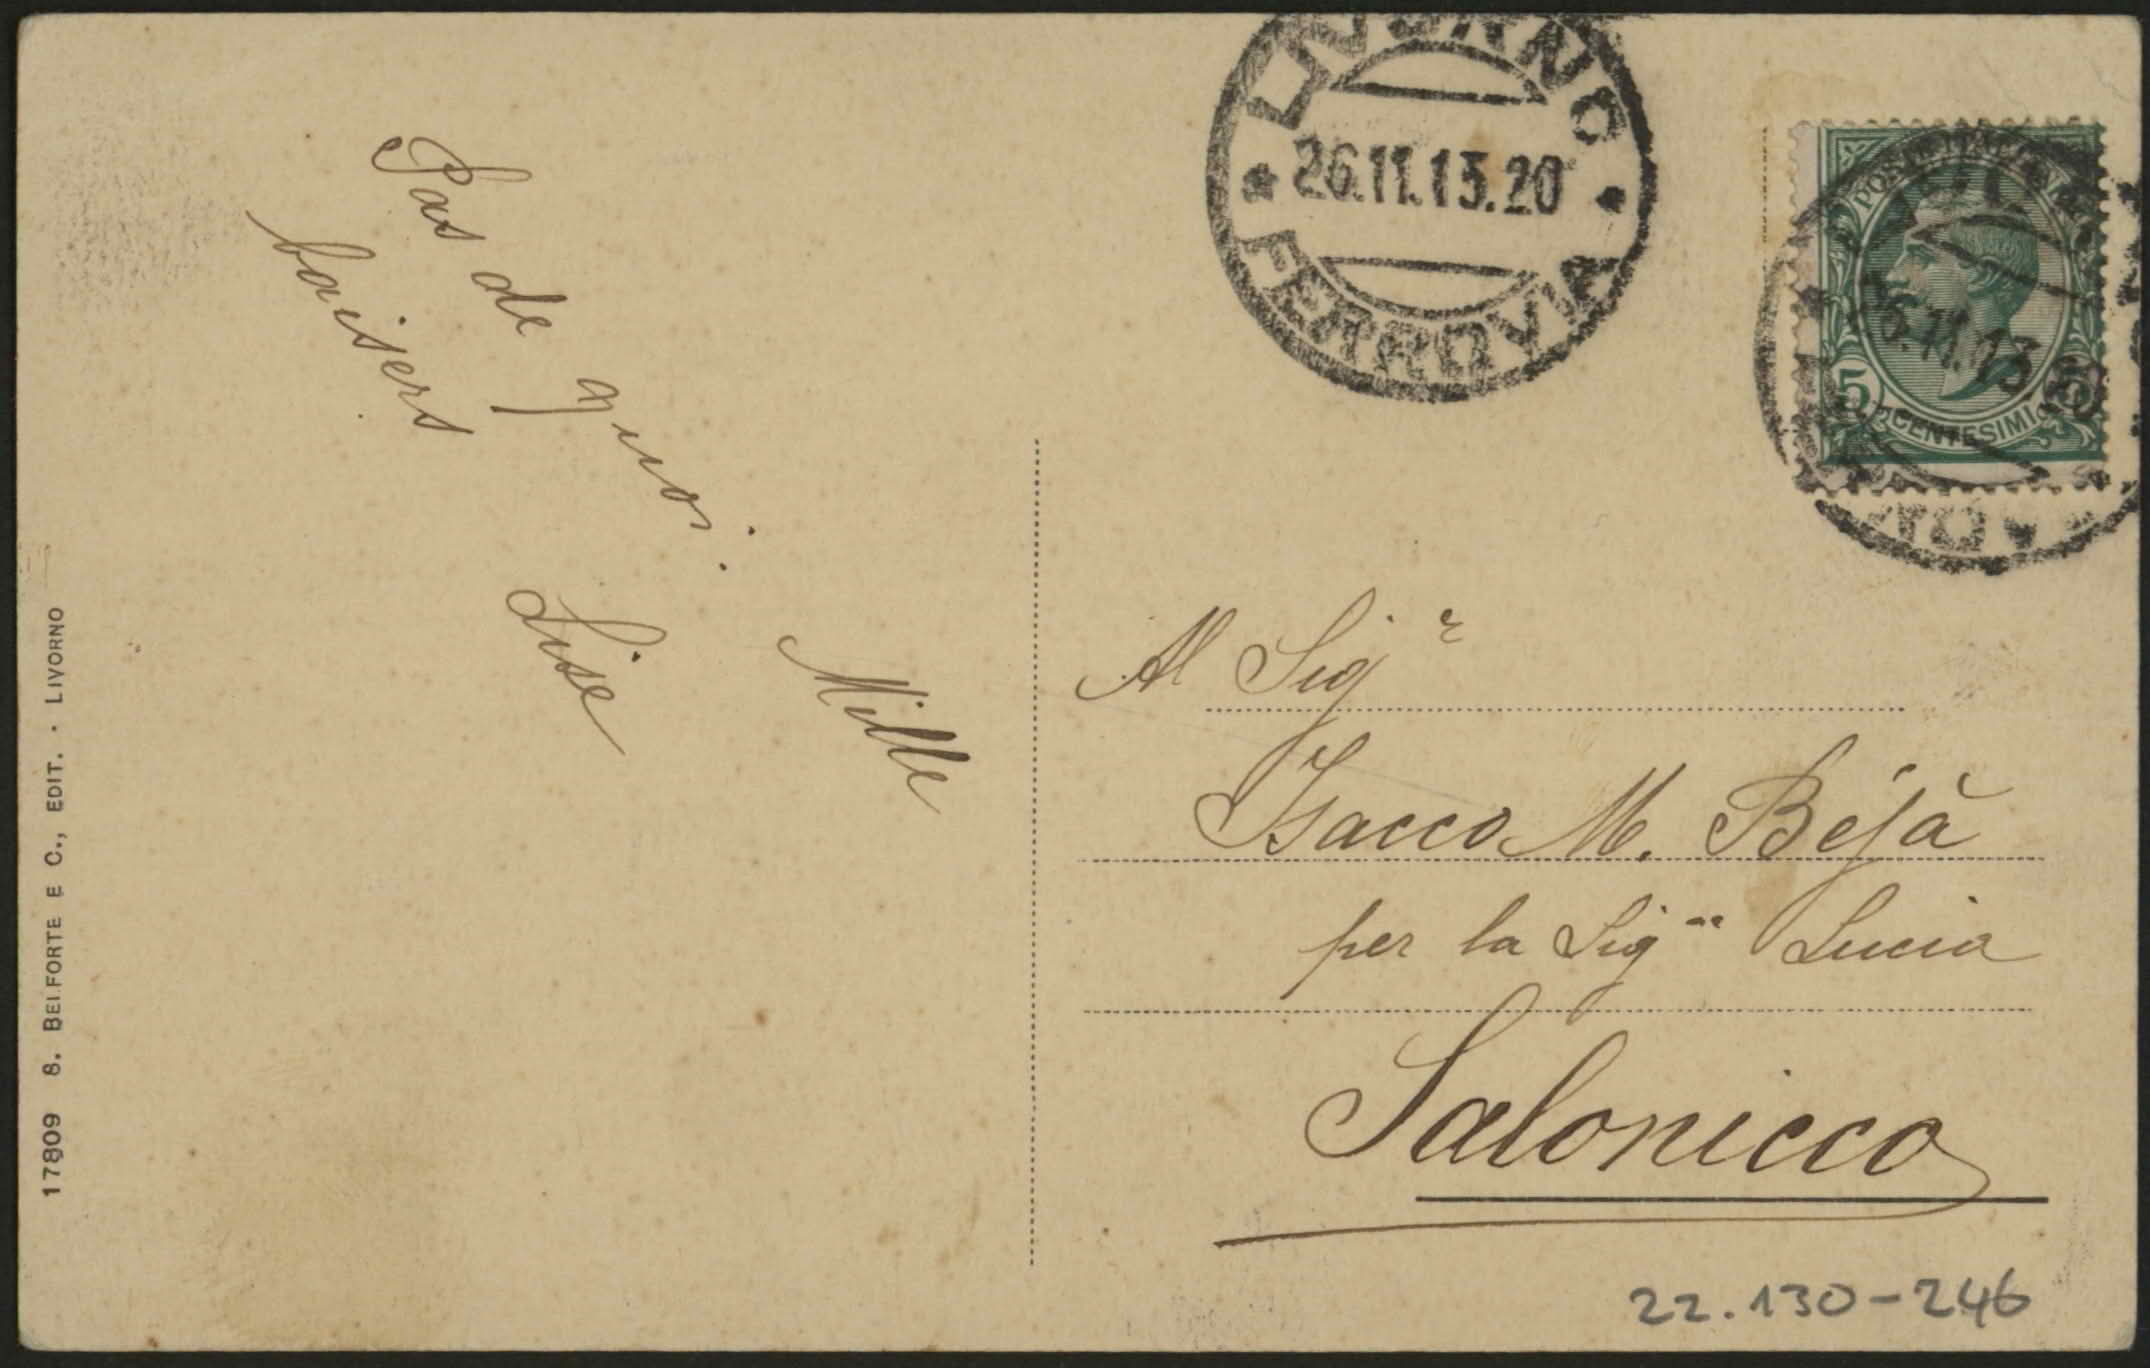 Pas de quoi. Mille
baisers
Lise
LIVORNO
* 26.11.13.20 *
FERROVIA
POSTE ITALIANE
5 CENTESIMI 5
26.11.13.20
Al Sig.r
Isacco M. Béjà
per la Sig.na Lucia
Salonicco
22.130-246
17809 S. BELFORTE E C., EDIT. · LIVORNO